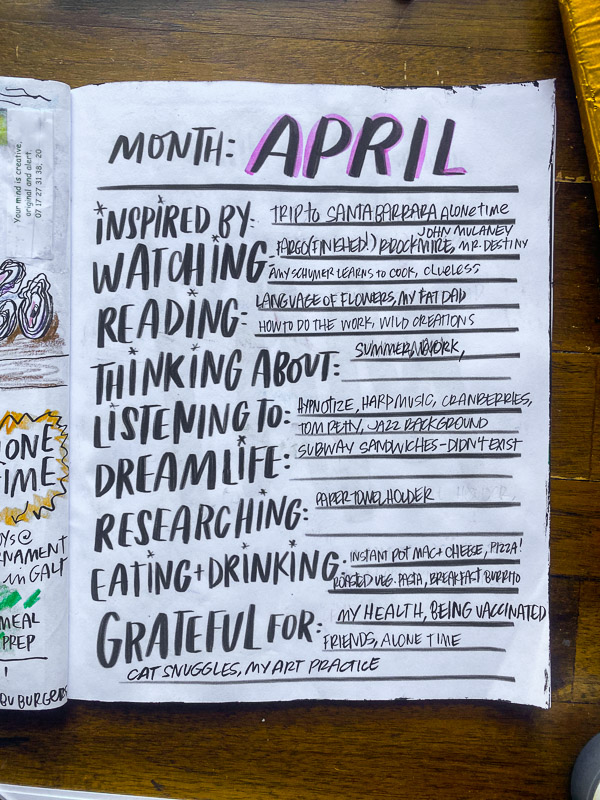 Your mind is creative,
original and alert.
07 17 27 31 38, 20
ONE
TIME
@
IN GALT
MEAL
PREP
BURGERS
MONTH: APRIL
INSPIRED BY: TRIP to SANTA BARBARA ALONE TIME
JOHN MULANEY
WATCHING: FARGO (FINISHED!) BROCKMIRE, MR. DESTINY
AMY SCHUMER LEARNS to COOK, CLUELESS
READING: LANGUAGE OF FLOWERS, MY FAT DAD
HOW TO DO THE WORK, WILD CREATIONS
THINKING ABOUT: SUMMER,
LISTENING TO: HYPNOTIZE, HARP MUSIC, CRANBERRIES,
TOM PETTY, JAZZ BACKGROUND
DREAM LIFE: SUBWAY SANDWICHES - DIDN'T EXIST
RESEARCHING: PAPER TOWEL HOLDER
EATING + DRINKING: INSTANT POT MAC + CHEESE, PIZZA!
ROASTED VEG. PASTA, BREAKFAST BURRITO
GRATEFUL FOR: MY HEALTH, BEING VACCINATED
FRIENDS, ALONE TIME
CAT SNUGGLES, MY ART PRACTICE